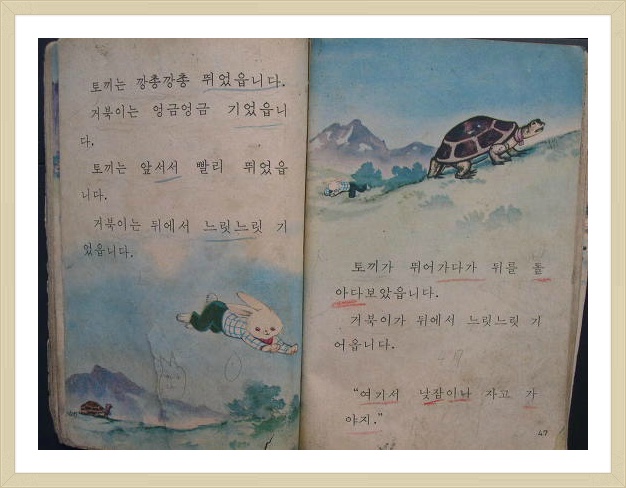 토끼는 깡총깡총 뛰었읍니다.
거북이는 엉금엉금 기었읍니
다.
토끼는 앞서서 빨리 뛰었읍
니다.
거북이는 뒤에서 느릿느릿 기
었읍니다.
토끼가 뛰어가다가 뒤를 돌
아다보았읍니다.
거북이가 뒤에서 느릿느릿 기
어옵니다.
“여기서 낮잠이나 자고 가
야지.”
47